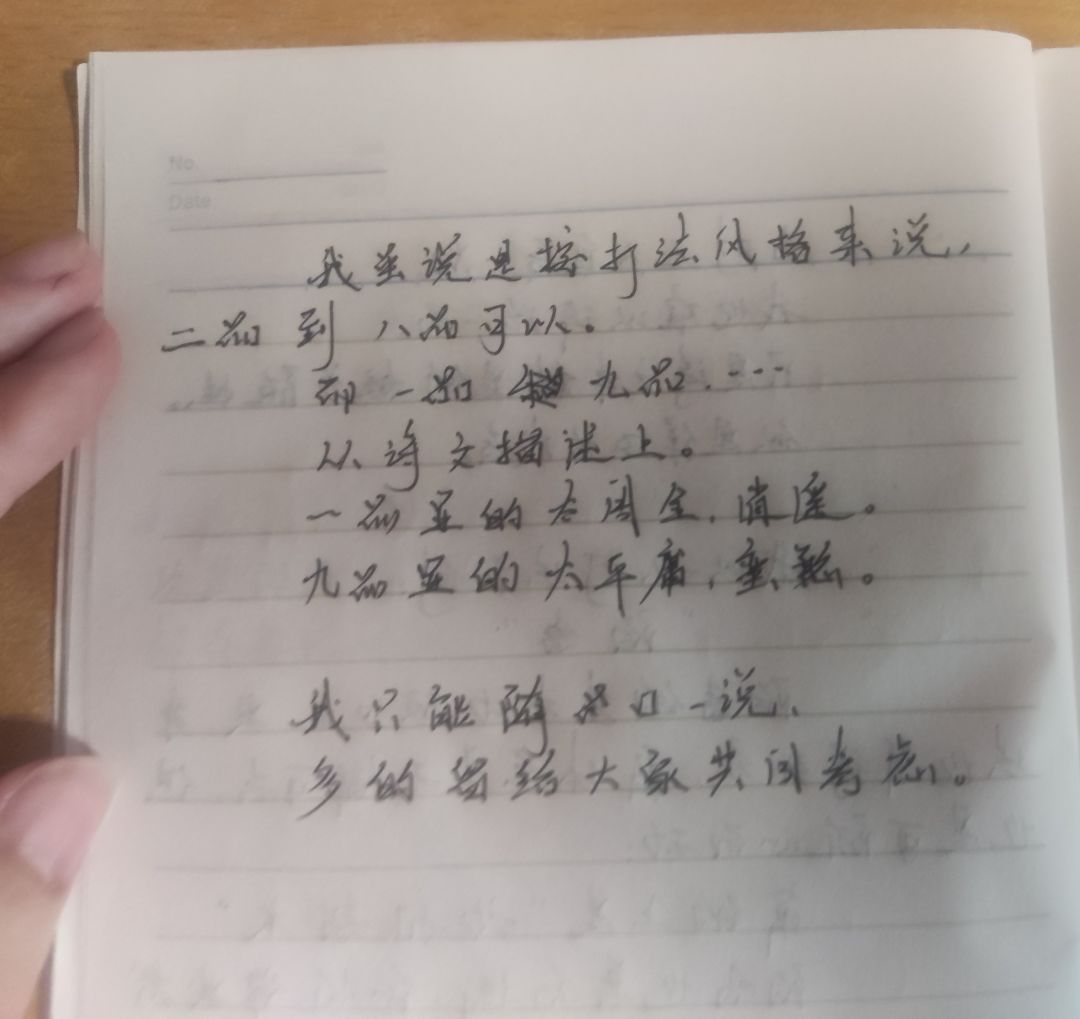 No.
Date
我来说是按打法风格来说，
二品到八品可以。
即一品 九品.…
以诗文描述上。
一品显的太周全，逍遥。
九品显的太平庸，
我只能随口一说，
多的留给大家共同考虑。